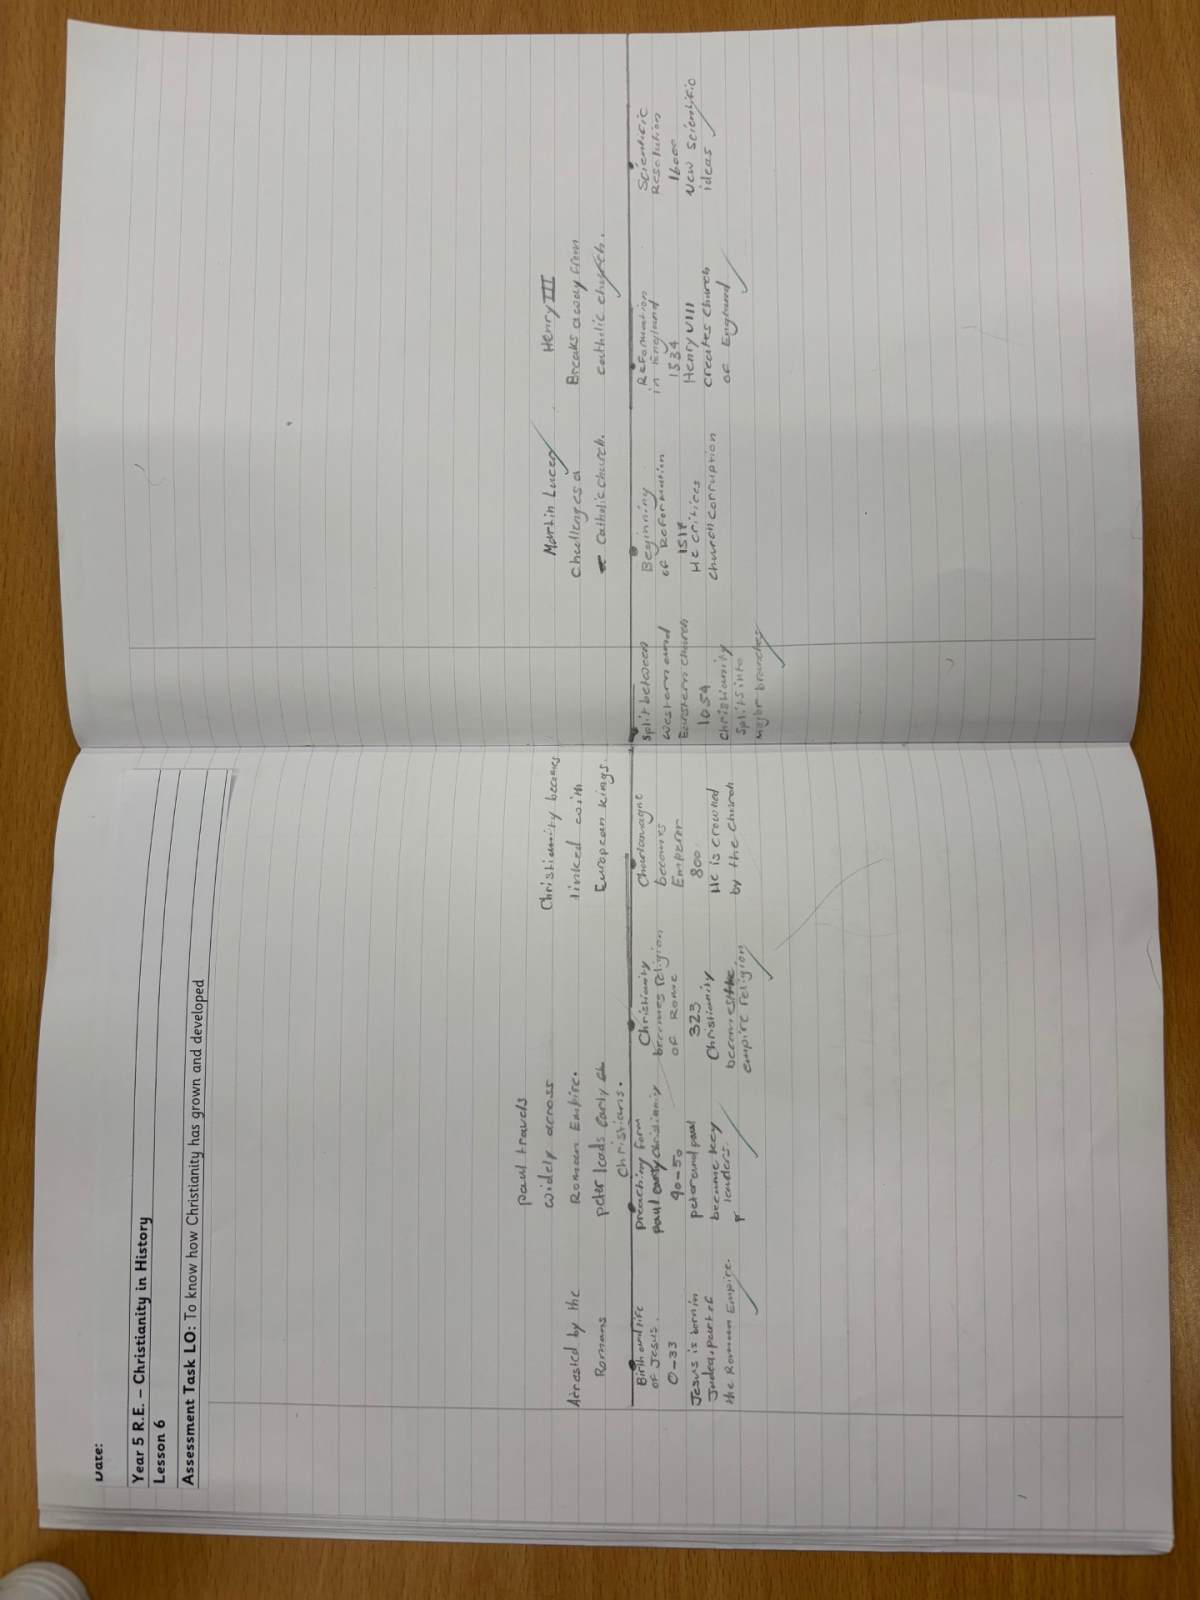 Date:
Year 5 R.E. – Christianity in History
Lesson 6
Assessment Task LO: To know how Christianity has grown and developed
Arrested by the
Romans
Birth and life
of Jesus.
0-33
Jesus is born in
Judea, part of
the Roman Empire.
Paul travels
widely across
Roman Empire.
peter leads early
Christians.
preaching form
paul early christianity
40-50
peter and paul
became key
leaders.
Christianity
becomes religion
of Rome
323
Christianity
becomes the
empire religion
Christianity becomes
linked with
European kings.
Charlamagne
becomes
Emperor
800
He is crowned
by the Church
Split between
western and
Eastern church
1054
Christianity
splits into
major branches
Martin Lucer
Challenges a
Catholic church.
Beginning
of Reformation
1517
He critices
church corruption
Henry III
Breaks away from
catholic church.
Reformation
in England
1534
Henry VIII
creates church
of England
Scientific
Resolution
1600s
New scientific
ideas